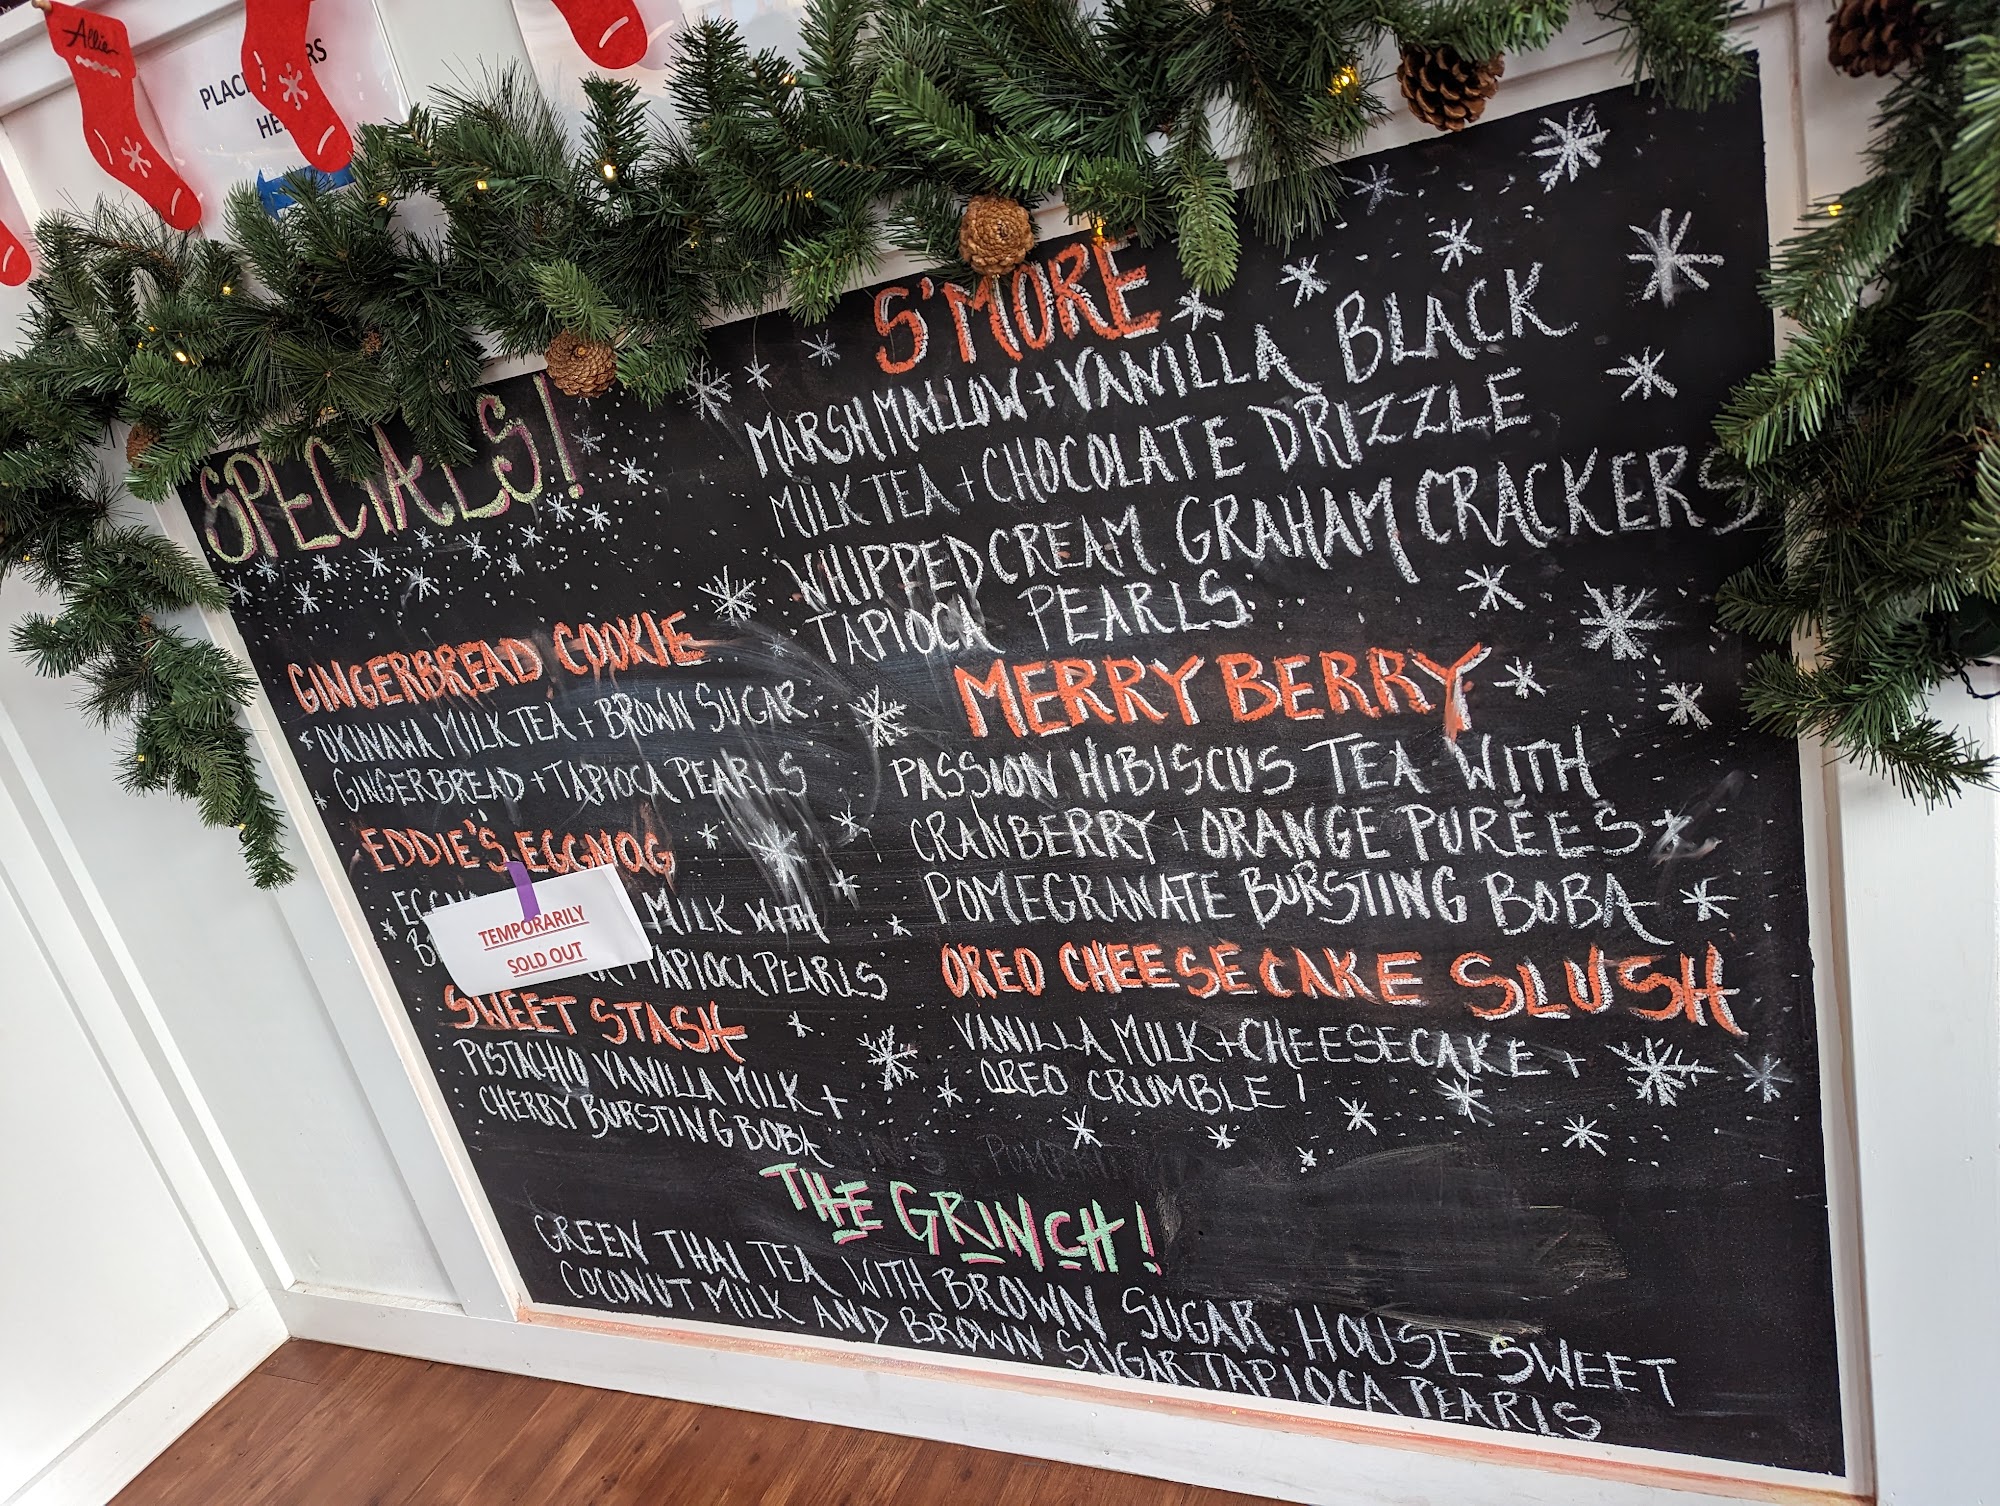 Allie
PLAC RS
HE
SPECIALS!
GINGERBREAD COOKIE
OKINAWA MILK TEA + BROWN SUGAR,
GINGERBREAD + TAPIOCA PEARLS
EDDIE'S EGGNOG
MILK WITH
TAPIOCA PEARLS
TEMPORARILY
SOLD OUT
SWEET STASH
PISTACHIO VANILLA MILK +
CHERRY BURSTING BOBA
S'MORE
MARSHMALLOW + VANILLA BLACK
MILK TEA + CHOCOLATE DRIZZLE
WHIPPED CREAM, GRAHAM CRACKERS
TAPIOCA PEARLS
MERRY BERRY
PASSION HIBISCUS TEA WITH
CRANBERRY + ORANGE PURÉES +
POMEGRANATE BURSTING BOBA
OREO CHEESECAKE SLUSH
VANILLA MILK + CHEESECAKE +
OREO CRUMBLE!
THE GRINCH!
GREEN THAI TEA WITH BROWN SUGAR, HOUSE SWEET
COCONUT MILK AND BROWN SUGAR TAPIOCA PEARLS